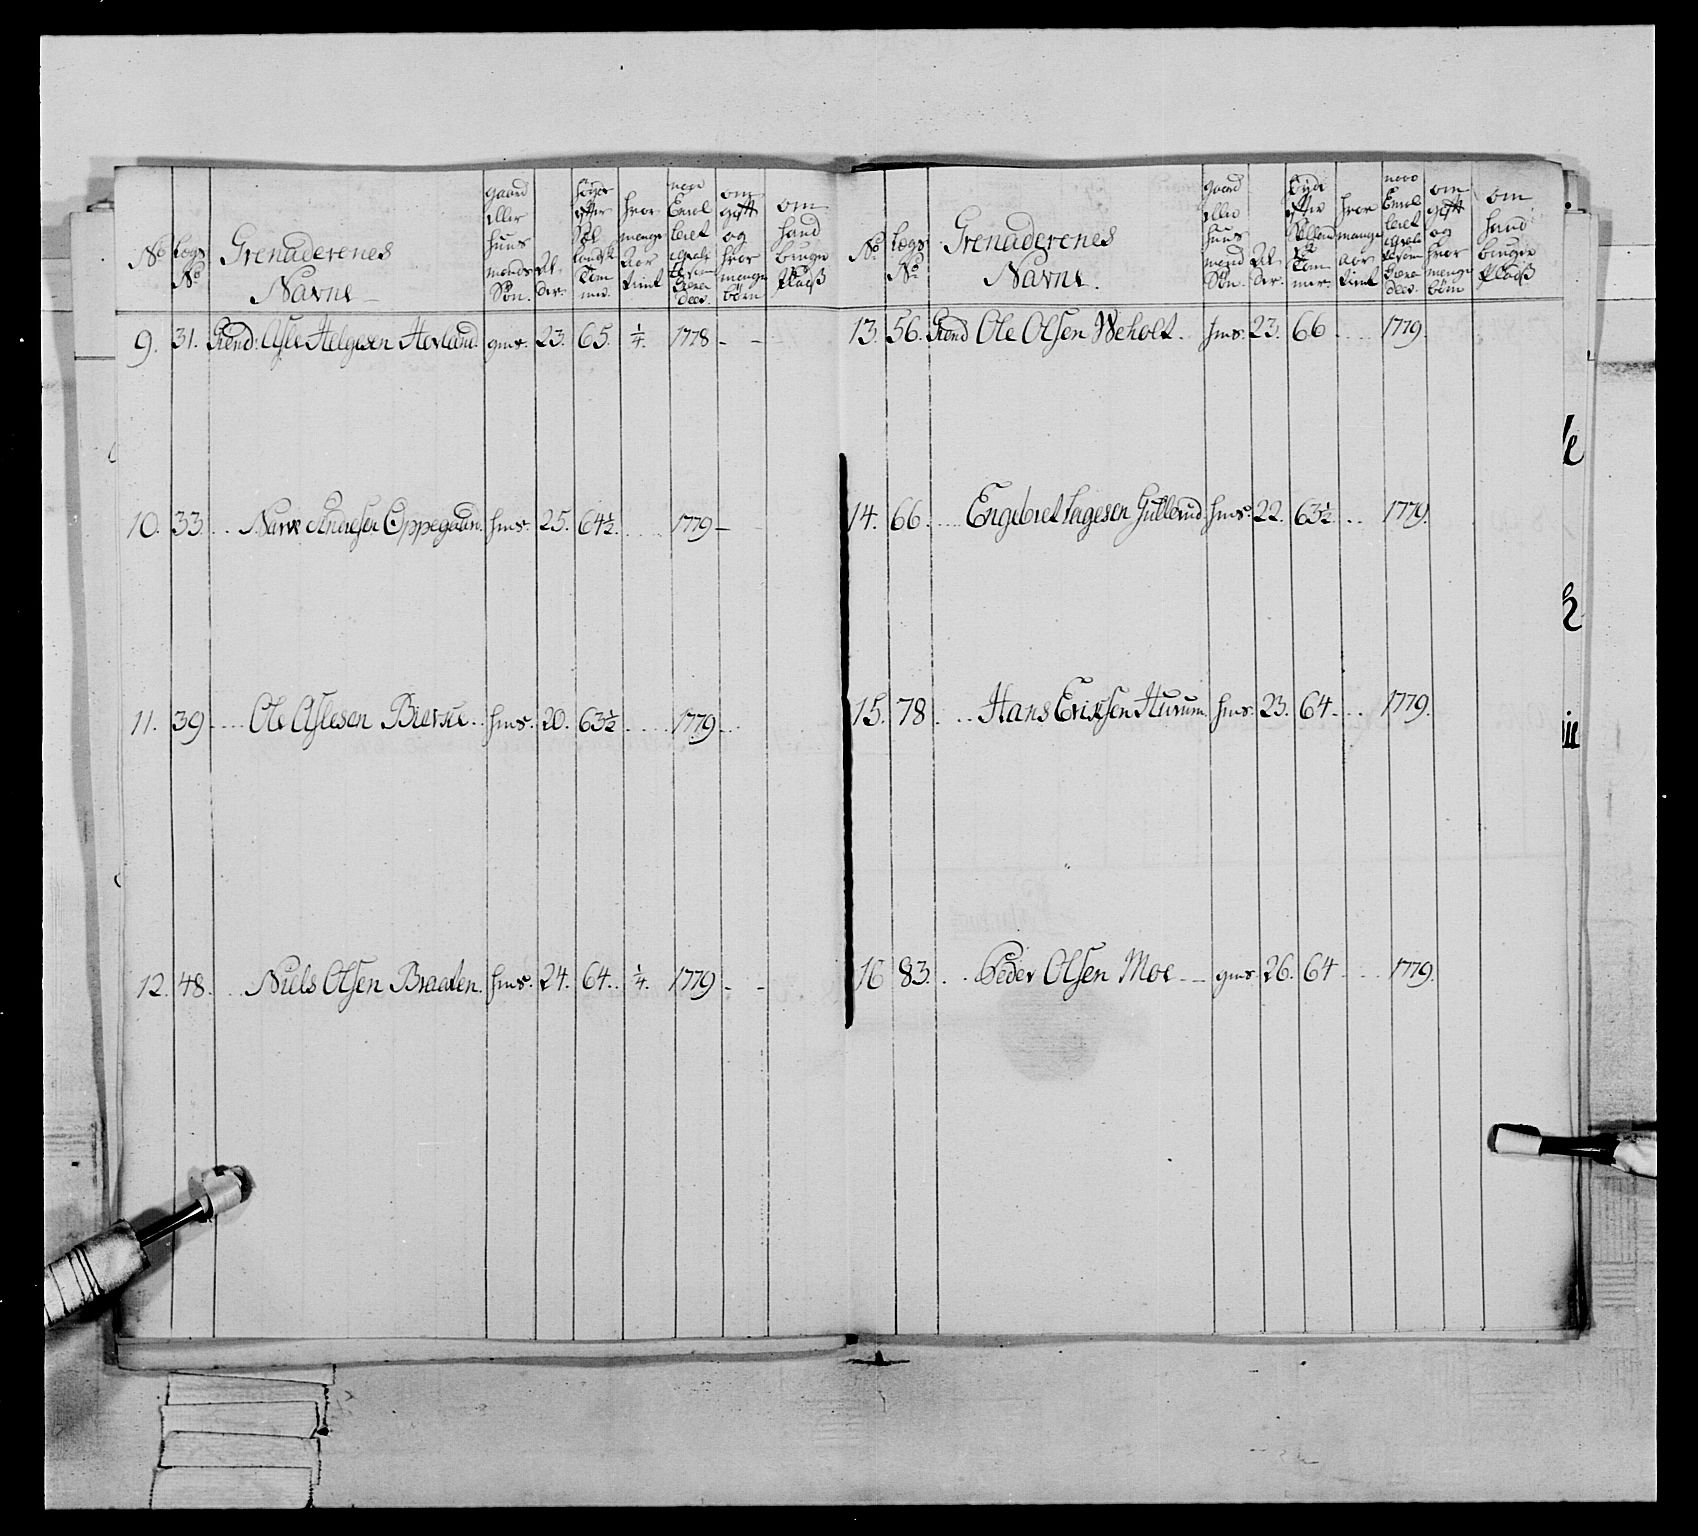 No Lægs No Grenaderenes Navne gaard eller huus mands Søn. Al- der. høyde efter hvor mange Aar tient naar Enrol leret om gift og hvor mange børn om hand bruger Pladß
9. 31. Grend: Asle Helgesen Hovland. gms. 23. 65. 1/4. 1778 - -
10. 33. Narve Andersen Oppegaard. hms. 25. 64 1/2. 1779 -
11. 39 Ole Aslesen Biersue. hms. 20. 63 1/2 1779
12. 48. Niels Olsen Braaten. hms. 24. 64. 1/4. 1779 - -
No. Lægs No Grenaderenes Navne. gaard eller huus mand Søn. Al- der. høyde efter hvor mange aar tient naar Enrol leret om gift og hvor mange børn om hand bruger Pladß
13. 56. Grend Ole Olsen Weholt. hms. 23. 66 1779.
14. 66. Engebret Hagesen Gullerud hms. 22. 63 1/2. 1779.
15. 78. Hans Erichsen Hurum. hms. 23. 64. 1779.
16 83. Peder Olsen Moe gms. 26. 64 1779.